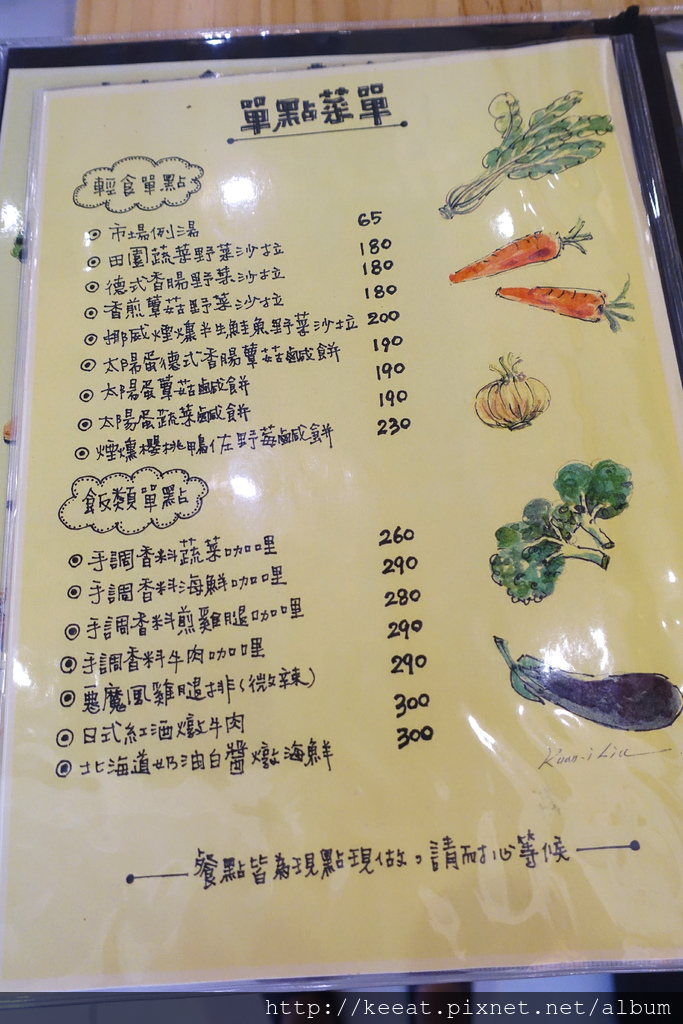 單點菜單
輕食單點
市場例湯 65
田園蔬菜野菜沙拉 180
德式香腸野菜沙拉 180
香煎蕈菇野菜沙拉 180
挪威煙燻半生鮭魚野菜沙拉 200
太陽蛋德式香腸蕈菇鹹餅 190
太陽蛋蕈菇鹹餅 190
太陽蛋蔬菜鹹餅 190
煙燻櫻桃鴨佐野莓鹹餅 230
飯類單點
手調香料蔬菜咖哩 260
手調香料海鮮咖哩 290
手調香料煎雞腿咖哩 280
手調香料牛肉咖哩 290
惡魔風雞腿排(微辣) 290
日式紅酒燉牛肉 300
北海道奶油白醬燉海鮮 300
Kuan-i Liu
餐點皆為現點現做。請耐心等候
http://keeat.pixnet.net/album